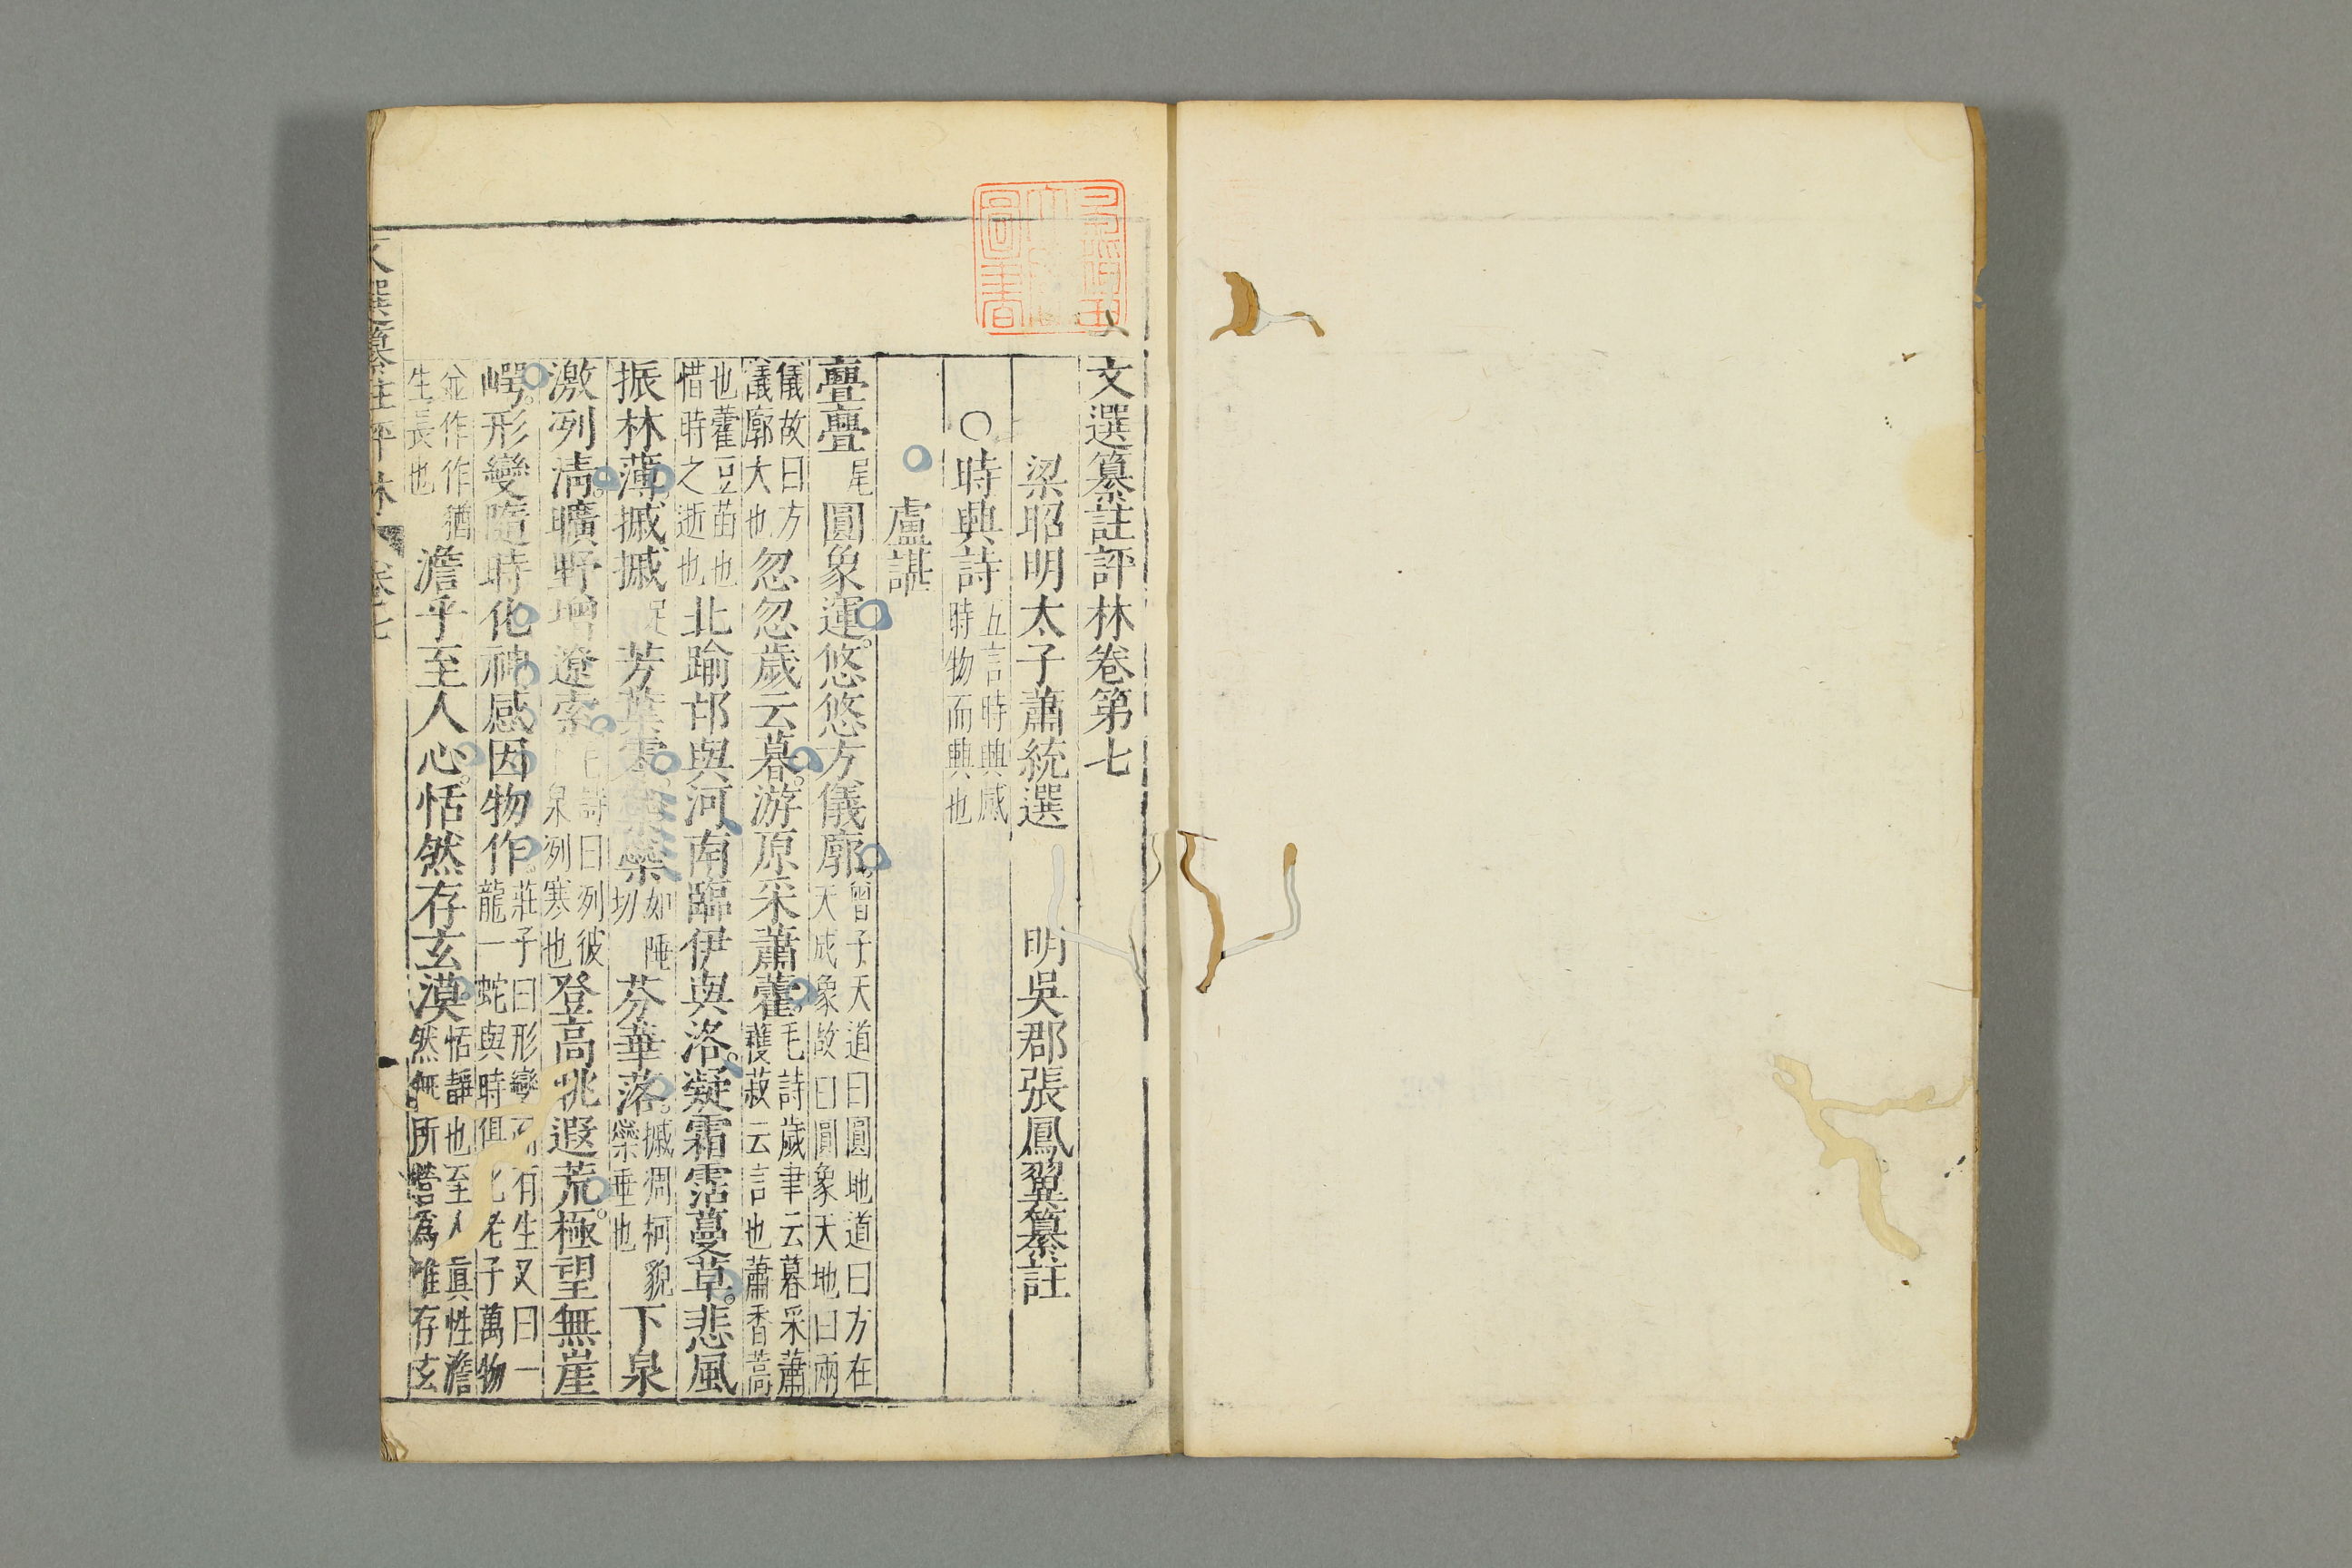 文選纂註評林卷第七
梁昭明太子蕭統選　明吳郡張鳳翼纂註
○時興詩 五言時興感時物而興也
盧諶
亹亹 尾 圓象運悠悠方儀廓 曾子天道曰圓地道曰方在天成象故曰圓象天地曰兩
儀故曰方議廓大也 忽忽歲云暮游原采蕭藿 毛詩歲聿云暮采蕭穫菽云言也蕭香蒿
也藿豆苗也惜時之逝也 北踰邙與河南臨伊與洛凝霜霑蔓草悲風
振林薄摵摵 芳葉零 橤 如陲切 芬華落 摵凋柯貌橤垂也 下泉
激冽清曠野增遼索 詩曰冽彼泉冽寒也 登高眺遐荒極望無崖
崿形變隨時化神感因物作 莊子曰形變有生又曰一龍一蛇與時俱化老子萬物
並作作猶生長也 澹乎至人心恬然存玄漠 恬靜也至人真性澹然無所營為惟存玄
選纂註評林 卷七
圖書